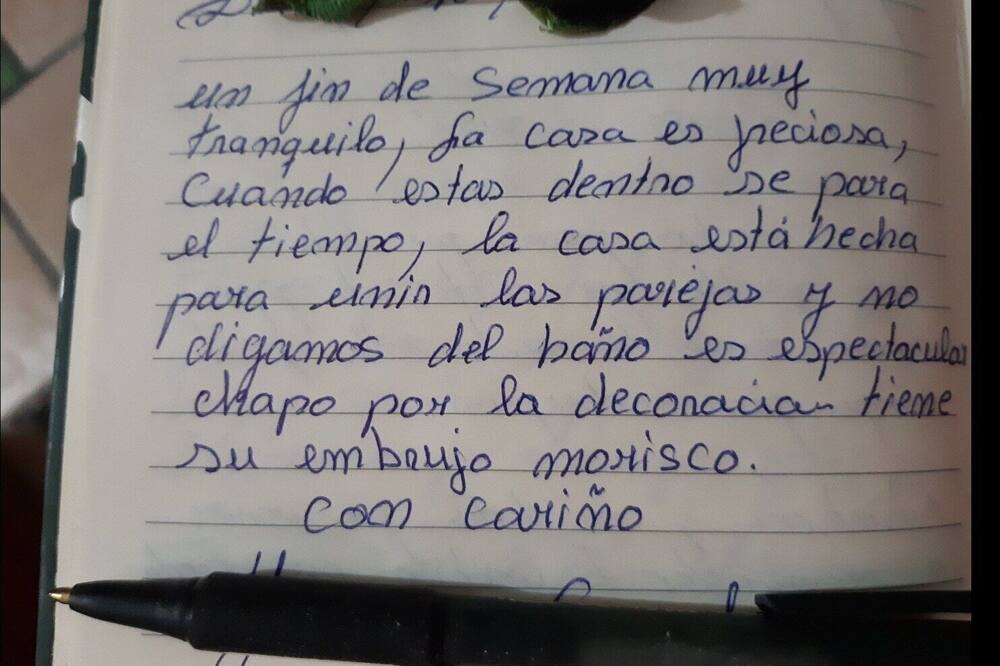 un fin de semana muy
tranquilo, La casa es preciosa,
Cuando estas dentro se para
el tiempo, la casa está hecha
para unir las parejas y no
digamos del baño es espectacular
chapo por la decoracion tiene
su embrujo morisco.
Con cariño